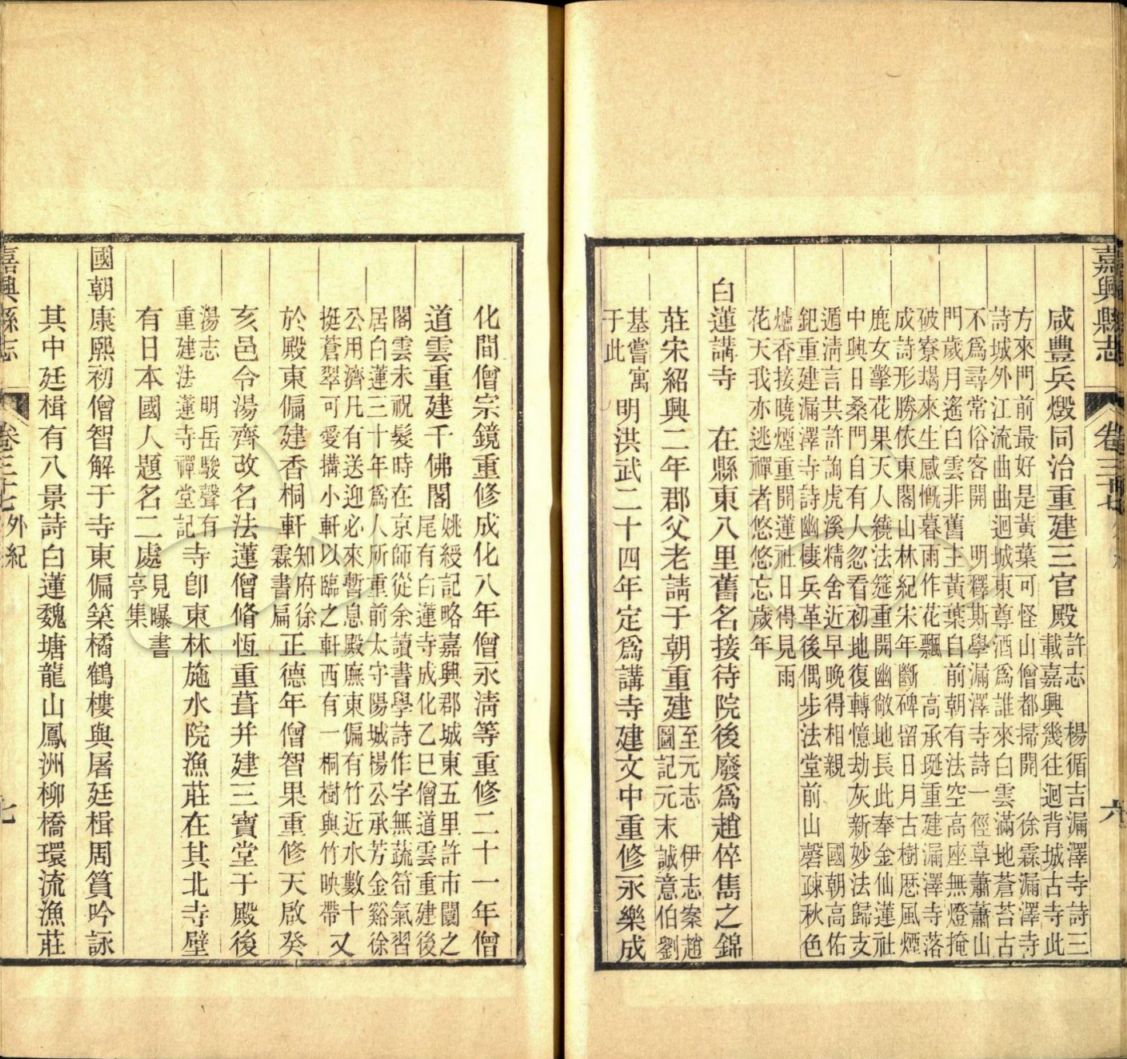 嘉興縣志 卷三十七 六
咸豐兵燬同治重建三官殿
許志 楊循吉漏澤寺詩三
載嘉興幾往迴背城古寺此
方來門前最好是黃葉可怪山僧都掃開 徐霖漏澤寺
詩城外江流曲曲迴城東尊酒爲誰來白雲滿地蒼苔古
不爲尋常俗客開 明釋斯學漏澤寺詩一徑草蕭蕭山
門歲月遙白雲非舊主黃葉自前朝有法空高座無燈掩
破寮堨來生感慨暮雨作花飄 高承埏重建漏澤寺落
成詩形勝依東閣山林紀宋年斷碑留日月古樹歷風煙
鹿女擎花果天人繞法筵重開幽敞地長此奉金仙蓮社
中興日桑門自有人忽看初地復轉憶劫灰新妙法歸支
遁淸言共許詢虎溪精舍近早晚得相親 國朝高佑
釲重建漏澤寺詩幽棲兵革後偶步法堂前山磬疎秋色
爐香接曉煙重開蓮社日得見雨
花天我亦逃禪者悠悠忘歲年
白蓮講寺 在縣東八里舊名接待院後廢爲趙倅雋之錦
莊宋紹興二年郡父老請于朝重建
至元志 伊志案趙
圖記元末誠意伯劉
基嘗寓
于此
明洪武二十四年定爲講寺建文中重修永樂成
化間僧宗鏡重修成化八年僧永淸等重修二十一年僧
道雲重建千佛閣
姚綬記略嘉興郡城東五里許市闤之
尾有白蓮寺成化乙巳僧道雲重建後
閣雲未祝髮時在京師從余讀書學詩作字無蔬筍氣習
居白蓮三十年爲人所重前太守陽城楊公承芳金谿徐
公用濟凡有送迎必來暫息殿廡東偏有竹近水數十
挺蒼翠可愛搆小軒以臨之軒西有一桐樹與竹映帶
又
於殿東偏建香桐軒
知府徐
霖書扁
正德年僧智果重修天啟癸
亥邑令湯齊改名法蓮僧脩恆重葺并建三寶堂于殿後
湯志 明岳駿聲有
重建法蓮寺禪堂記
寺卽東林施水院漁莊在其北寺壁
有日本國人題名二處
見曝書
亭集
國朝康熙初僧智解于寺東偏築橘鶴樓與屠廷楫周篔吟詠
其中廷楫有八景詩白蓮魏塘龍山鳳洲柳橋環流漁莊
嘉興縣志 卷三十七 外紀 七